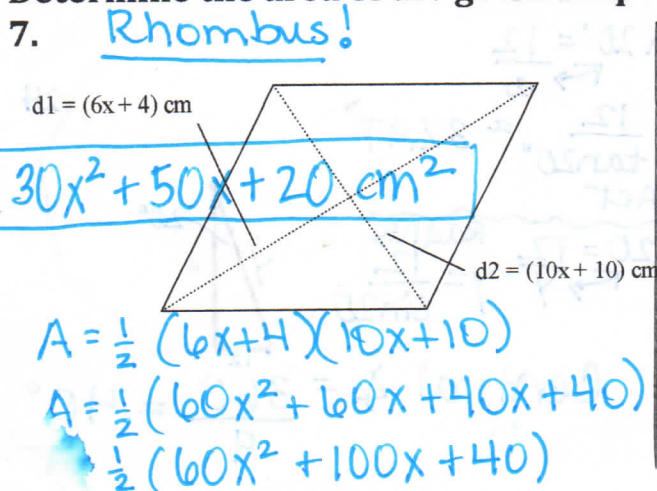 7. Rhombus!
d1 = (6x + 4) cm
30x² + 50x + 20 cm²
d2 = (10x + 10) cm
A = ½ (6x+4)(10x+10)
A = ½ (60x² + 60x + 40x + 40)
½ (60x² + 100x + 40)